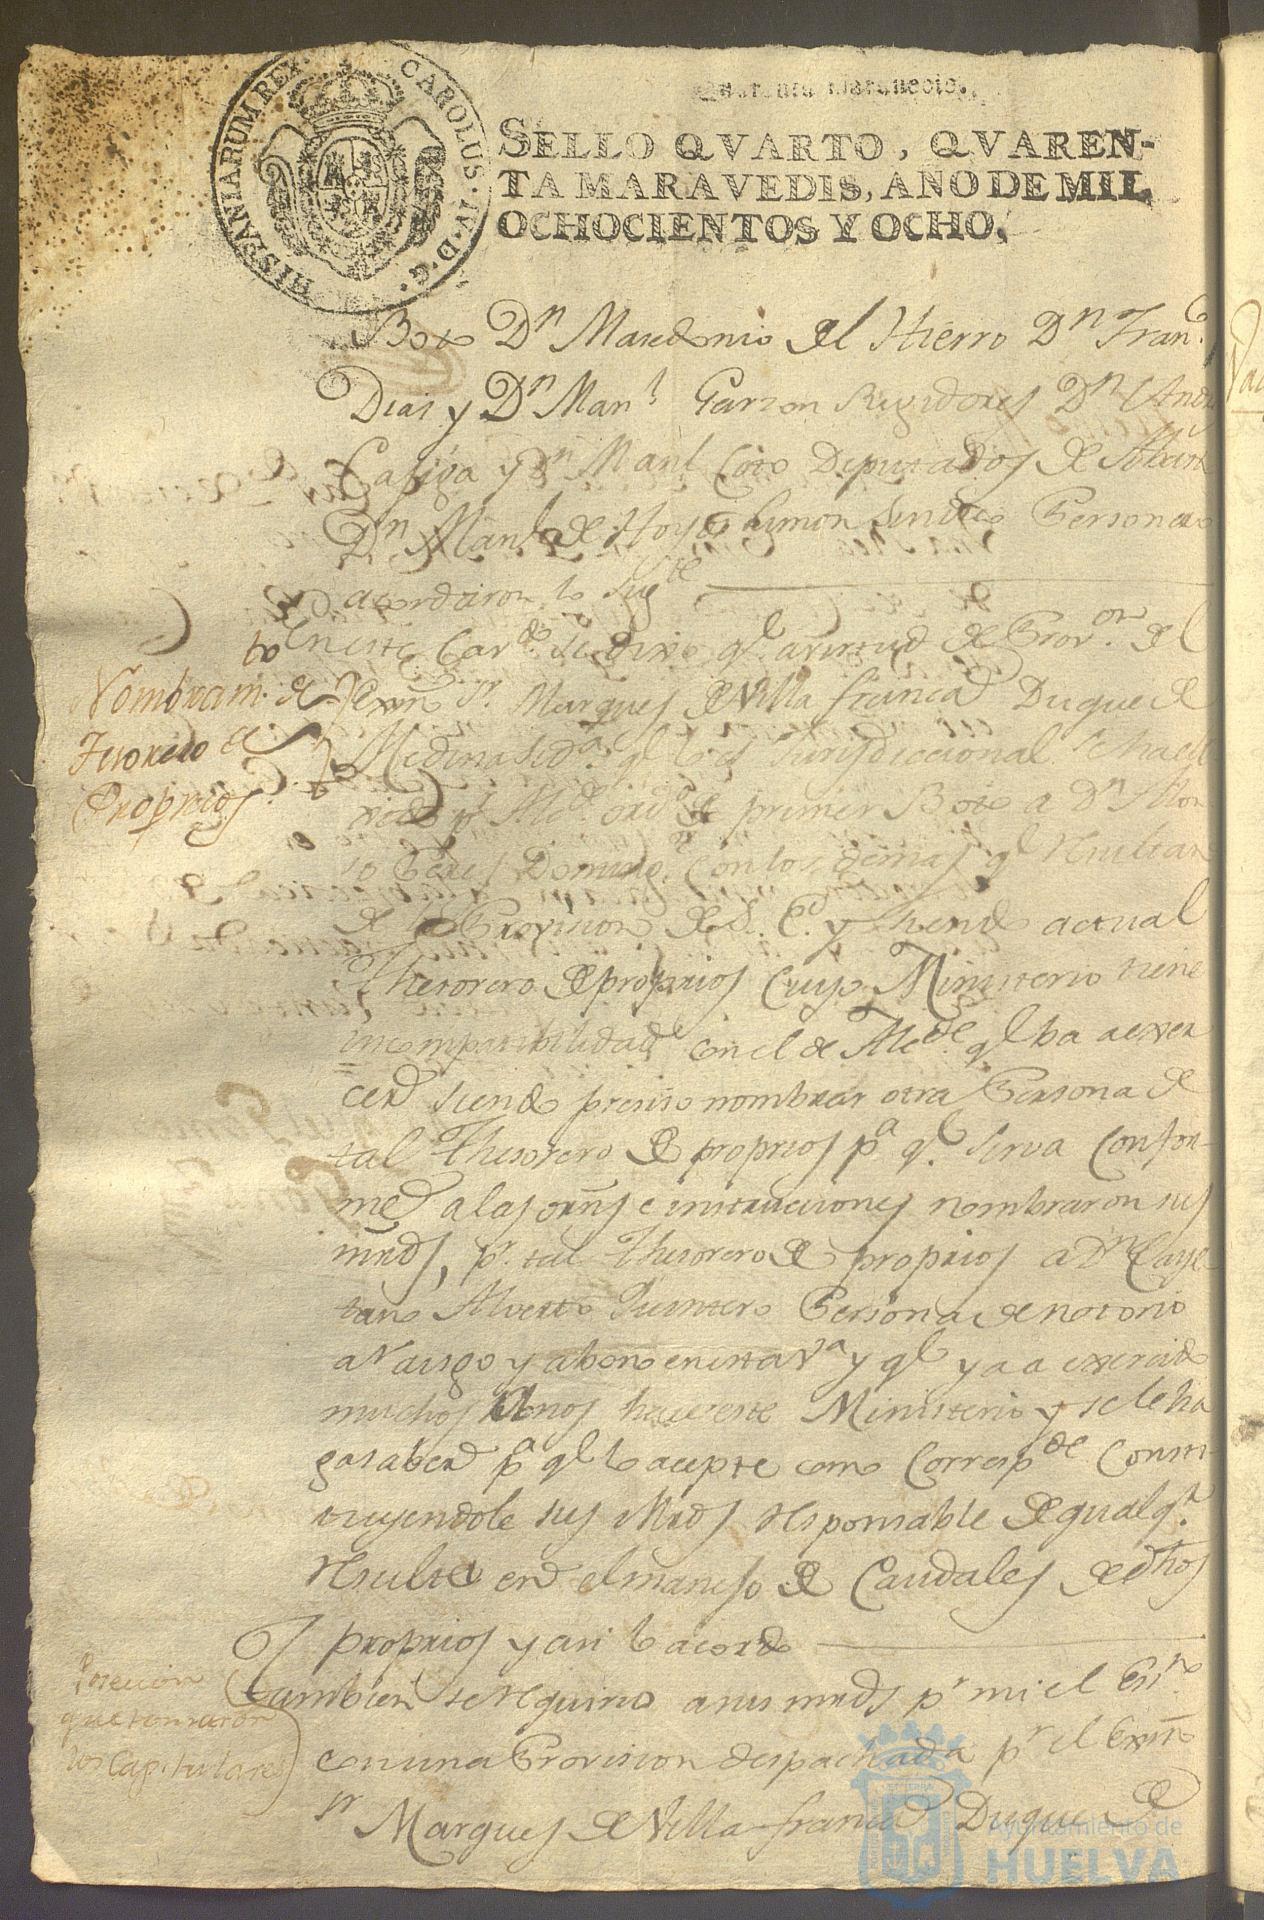 Quarenta Maravedis.
HISPANIARUM REX. CAROLUS. IV. D. G.
SELLO QVARTO, QVAREN-
TA MARAVEDIS, AÑO DE MIL
OCHOCIENTOS Y OCHO.
Boto Dn Macedonio del Hierro Dn Franco.
Dias y Dn Manl Garzon Regidores Dn
y Dn Manl Coto Diputados de
Dn Manl de Hoyos Limon Sindico Personero
acordaron lo sigte
En este Cavdo. se dixo qe. a virtud de Provon. del
Nombram.to de
Exmo Sr. Marques de Villa franca Duque de
Thesorero de
Medina Sida. qe lo es Jurisdiccional se ha ele
Proprios
xido pr Alce. ordo. de primer Boto a Dn Alon
so Perez Domingz. con los demas qe resultan
de la Provision de S. Ea. y siendo actual
Thesorero de proprios cuyo Ministerio tiene
incompatibilidad con el de Alcde. qe ha a exer
cer siendo presiso nombrar otra Persona de
tal Thesorero de proprios pa qe. sirva confor-
me a las orns e instrucciones nombraron sus
mrds, pr. tal Thesorero de proprios a Dn Caye
tano Alverto Quintero Persona de notorio
arraigo y abono en esta Va y qe ya a exercido
muchos Años ha este Ministerio y se le ha
ga saber pa qe lo acepte como correspde consti
tuyendole sus Mrds responsable de qualqa.
resulta en el manejo de Caudales de dhos
proprios y asi lo acordo
Posecion
que tomaron
los Capitulares
Tambien se requirio a sus mrds pr mi el Esno.
con una Provision despachada pr el Exmo
Sr Marques de Villa-franca Duque de
Ayuntamiento de
HUELVA